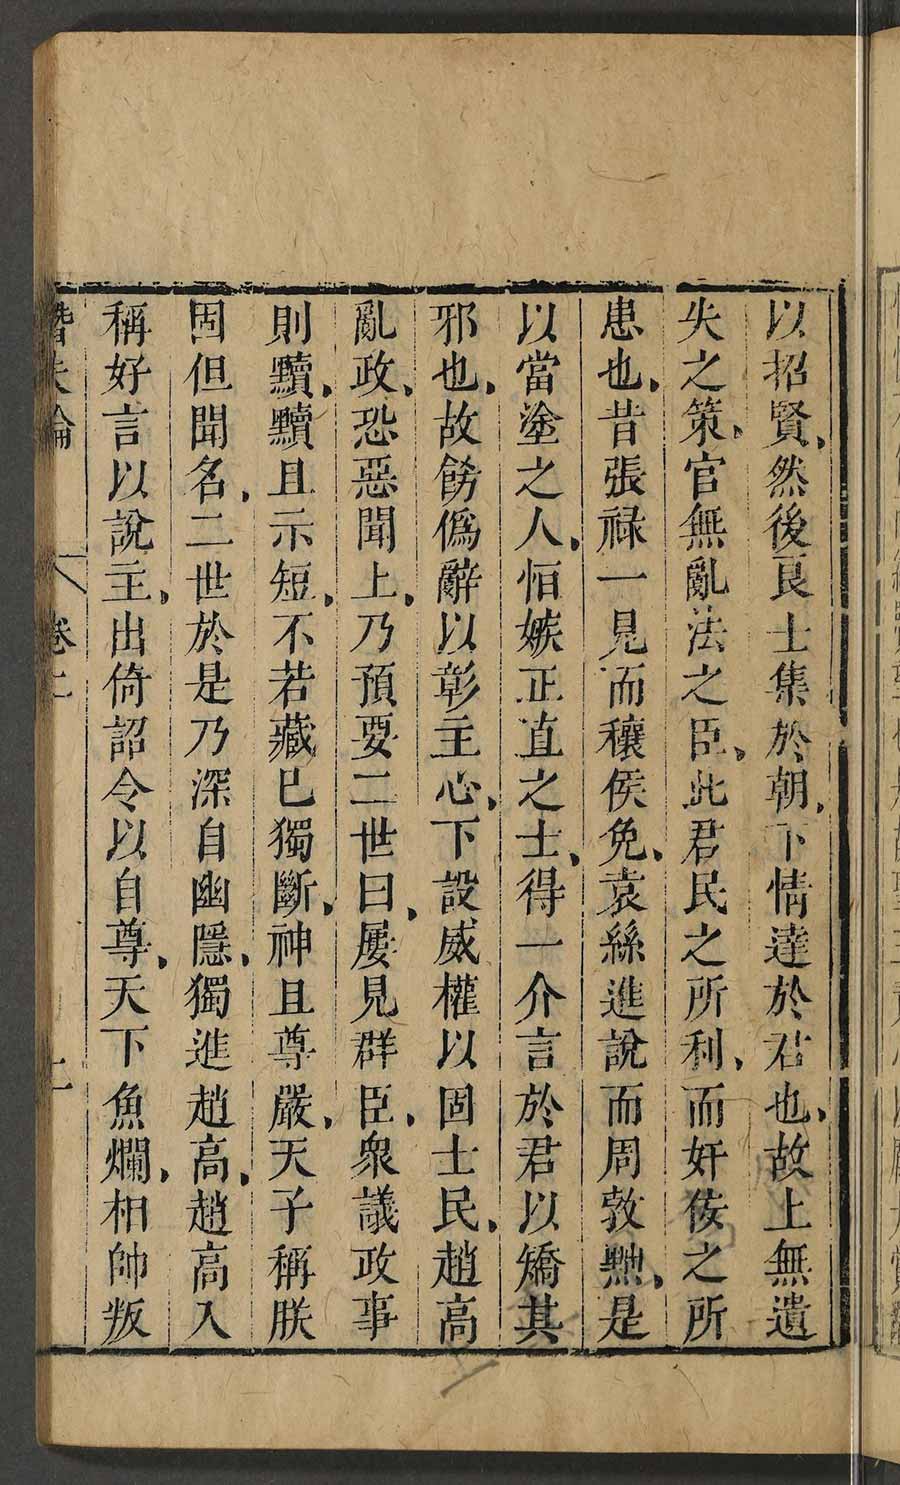 以招賢、然後良士集於朝、下情達於君也、故上無遺
失之策、官無亂法之臣、此君民之所利、而奸佞之所
患也、昔張祿一見而穰侯免、袁絲進說而周敦黜、是
以當塗之人、恒嫉正直之士、得一介言於君以矯其
邪也、故飾偽辭以彰主心、下設威權以固士民、趙高
亂政、恐惡聞上、乃預要二世曰、屢見群臣、衆議政事
則黷、黷且示短、不若藏己獨斷、神且尊嚴、天子稱朕
固但聞名、二世於是乃深自幽隱、獨進趙高、趙高入
稱好言以說主、出倚詔令以自尊、天下魚爛、相帥叛